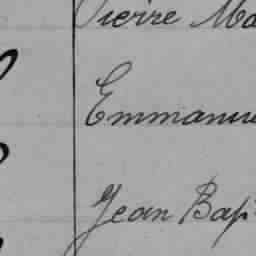 Pierre Ma
Emmanue
Jean Bap